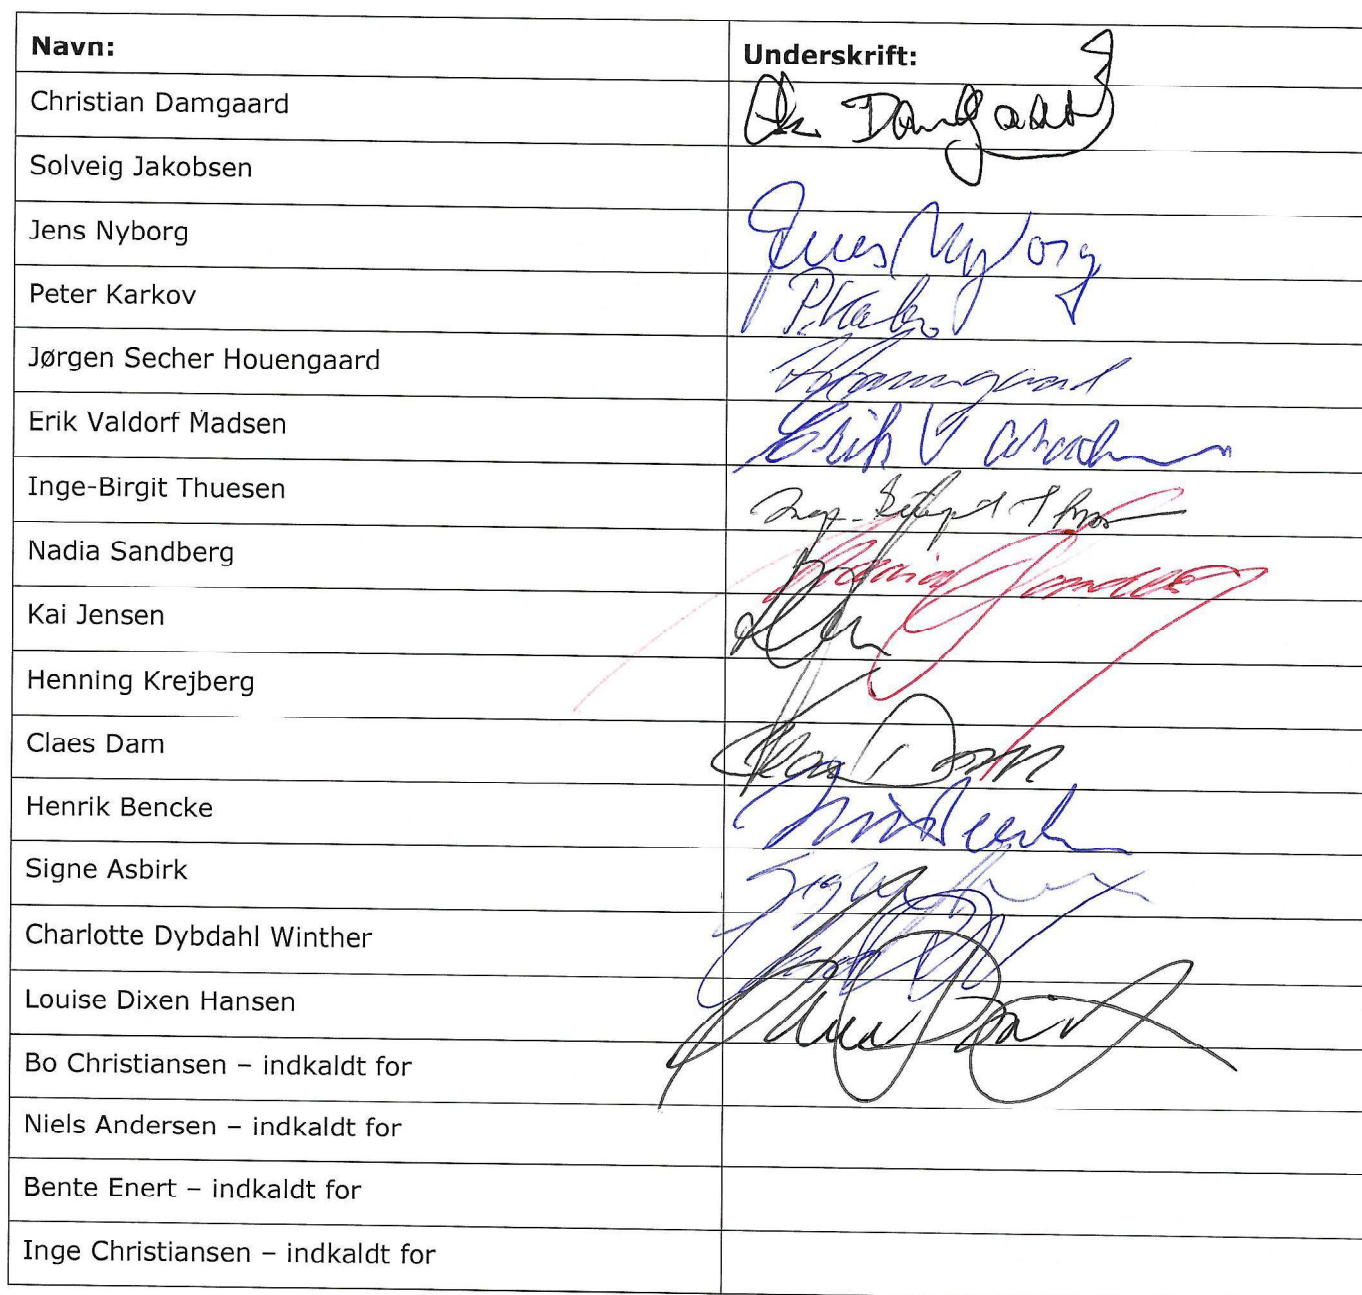 Navn: Underskrift:
Christian Damgaard Chr. Damgaard
Solveig Jakobsen
Jens Nyborg Jens Nyborg
Peter Karkov P. Karkov
Jørgen Secher Houengaard
Erik Valdorf Madsen Erik V
Inge-Birgit Thuesen Inge-Birgit
Nadia Sandberg Nadia Sandberg
Kai Jensen
Henning Krejberg
Claes Dam Claes Dam
Henrik Bencke
Signe Asbirk Signe
Charlotte Dybdahl Winther
Louise Dixen Hansen
Bo Christiansen – indkaldt for
Niels Andersen – indkaldt for
Bente Enert – indkaldt for
Inge Christiansen – indkaldt for